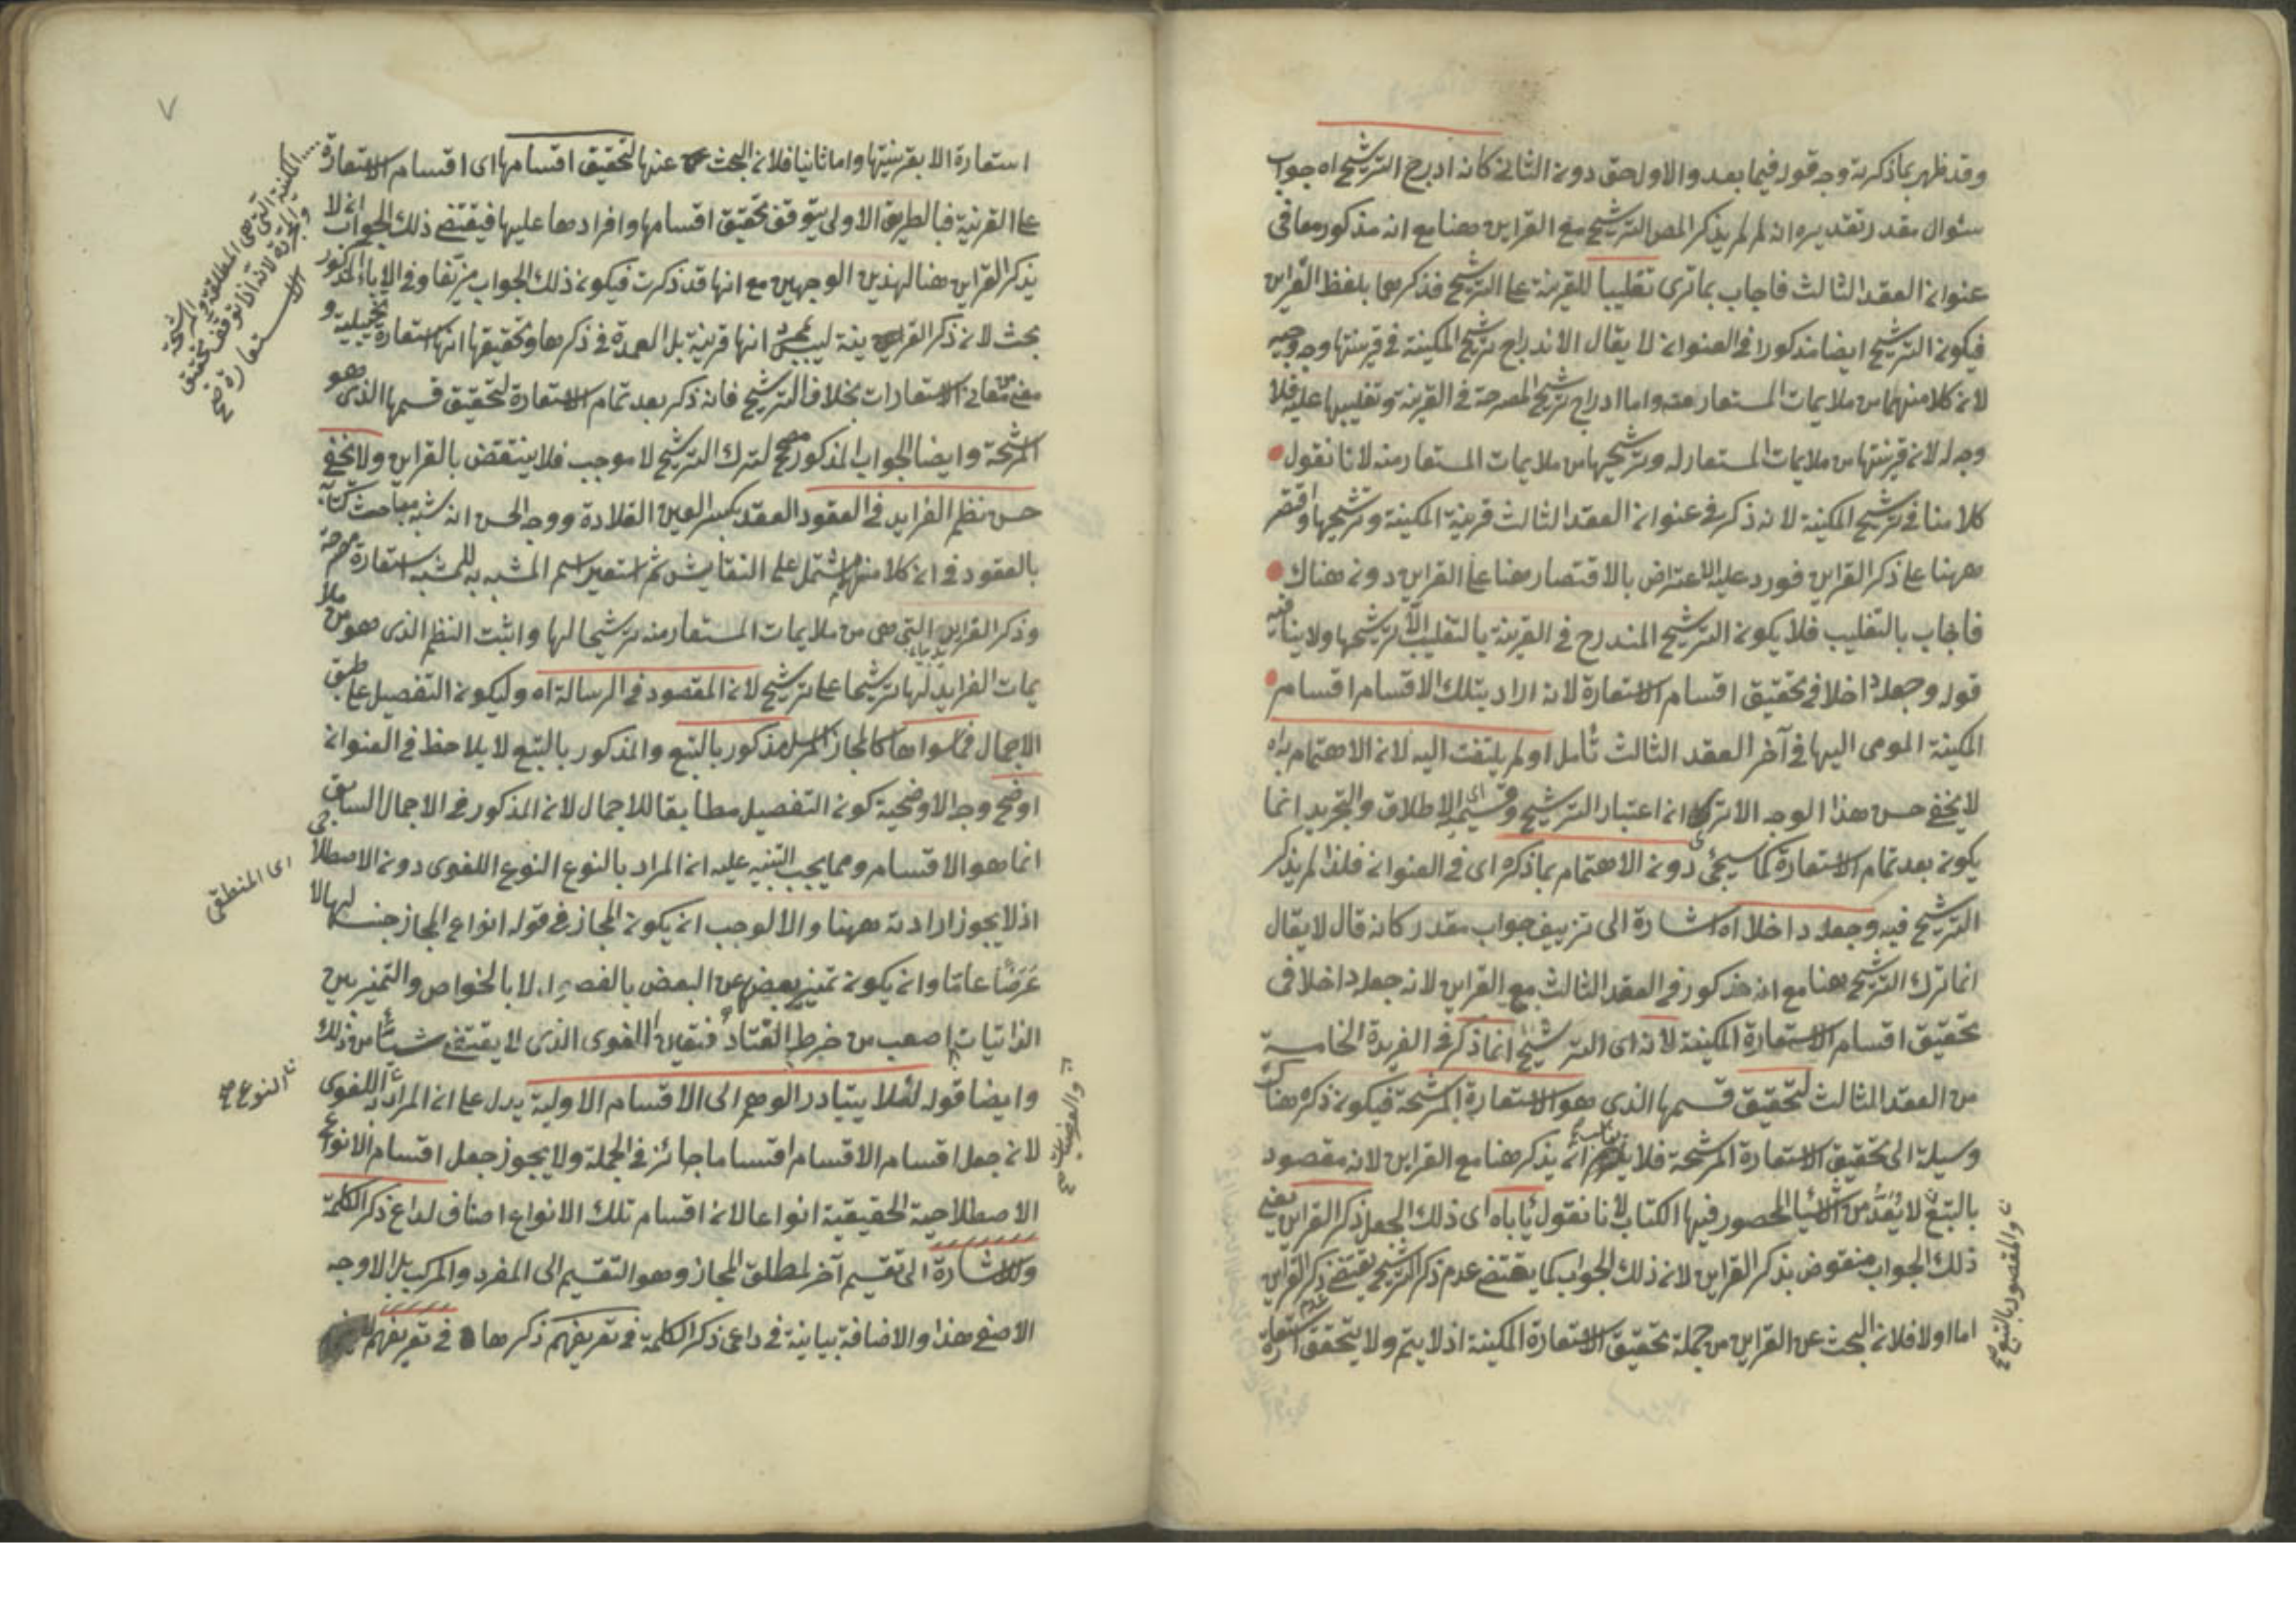 وقد ظهر بما ذكرته وجه قوله فيما بعد والاول حق دون الثانى كانه ادرج الترشيح اه جواب
سئوال مقدر تقديره انه لم لم يذكر المص الترشيح مع القراين هنا مع انه مذكور معها فى
عنوان العقد الثالث فاجاب بما ترى تغليبا للقرينة على الترشيح فذكرهما بلفظ القراين
فيكون الترشيح ايضا مذكورا فى العنوان لا يقال الاندراج ترشيح المكنية فى قرينتها وجه وجيه
لان كلا منهما من ملايمات المستعار منه واما ادراج ترشيح المصرحة فى القرينة وتغليبها عليه فلا
وجه له لان قرينتها من ملايمات المستعار له وترشيحها من ملايمات المستعار منه لانا نقول
كلامنا فى ترشيح المكنية لانه ذكر فى عنوان العقد الثالث قرينة المكنية وترشيحها واقتصر
ههنا على ذكر القراين فورد عليه الاعتراض بالاقتصار هنا على القراين دون هناك
فاجاب بالتغليب فلا يكون الترشيح المندرج فى القرينة بالتغليب الا ترشيحها ولا ينافيه
قوله وجعله داخلا فى تحقيق اقسام الاستعارة لانه اراد بتلك الاقسام اقسام
المكنية المومى اليها فى آخر العقد الثالث تأمل او لم يلتفت اليه لان الاهتمام به اه
لا يخفى حسن هذا الوجه الا ترى ان اعتبار الترشيح وقسيميه اى الاطلاق والتجريد انما
يكون بعد تمام الاستعارة كما سيجئ دون الاهتمام بما ذكره اى فى العنوان فلذا لم يذكر
الترشيح فيه وجعله داخلا اه اشارة الى تزييف جواب مقدر كانه قال لا يقال
انما ترك الترشيح هنا مع انه مذكور فى العقد الثالث مع القراين لانه جعله داخلا فى
تحقيق اقسام الاستعارة المكنية لانه اى الترشيح انما ذكر فى الفريدة الخامسة
من العقد الثالث لتحقيق قسمها الذى هو الاستعارة المرشحة فيكون ذكره هناك
وسيلة الى تحقيق الاستعارة المرشحة فلا يناسب ان يذكر هنا مع القراين لانه مقصود
بالتبع لا يعد من الاشياء المحصور فيها الكتاب لانا نقول يأباه اى ذلك الجعل ذكر القراين يعنى
ذلك الجواب منقوض بذكر القراين لان ذلك الجواب كما يقتضى عدم ذكر الترشيح يقتضى عدم ذكر القراين
اما اولا فلان البحث عن القراين من جملة تحقيق الاستعارة المكنية اذ لا يتم ولا يتحقق استعارة
والمقصود بالتبع صح
٧
استعارة الا بقرينتها واما ثانيا فلان البحث عنها لتحقيق اقسامها اى اقسام الاستعارة
على القرينة فبالطريق الاولى يتوقف تحقيق اقسامها وافرادها عليها فيقتضى ذلك الجواب ان لا
يذكر القراين هنا لهذين الوجهين مع انها قد ذكرت فيكون ذلك الجواب مزيفا وفى الاباء المذكور
بحث لان ذكر القراين فيه ليس لمجرد انها قرينة بل العمدة فى ذكرها وتحقيقها انها استعارة تخييلية و
معنى من معانى الاستعارات بخلاف الترشيح فانه ذكر بعد تمام الاستعارة لتحقيق قسمها الذى هو
المرشحة وايضا الجواب المذكور مصحح لترك الترشيح لا موجب فلا ينتقض بالقراين ولا يخفى
حسن نظم الفرايد فى العقود العقد بكسر العين القلادة ووجه الحسن انه شبه مباحث كتابه
بالعقود فى ان كلا منهما مشتمل على النفايس ثم استعير اسم المشبه به للمشبه استعارة مصرحة
وذكر الفرايد التى هى من ملايمات المستعار منه ترشيحا لها واثبت النظم الذى هو من ملا
يمات الفرايد لها ترشيحا على ترشيح لان المقصود فى الرسالة اه وليكون التفصيل على طبق
الاجمال فما سواها كالمجاز المرسل مذكور بالتبع والمذكور بالتبع لا يلاحظ فى العنوان
اوضح وجه الاوضحية كون التفصيل مطابقا للاجمال لان المذكور فى الاجمال السابق
انما هو الاقسام ومما يجب التنبيه عليه ان المراد بالنوع النوع اللغوى دون الاصطلاحى
اذ لا يجوز ارادته ههنا والا لوجب ان يكون المجاز فى قوله انواع المجاز جنسا لها لا
عرضا عاما وان يكون تميز بعضها عن البعض بالفصول لا بالخواص والتميز بين
الذاتيات اصعب من خرط القتاد فتعين اللغوى الذى لا يقتضى شيئا من ذلك
وايضا قوله لئلا يتبادر الوهم الى الاقسام الاولية يدل على ان المراد اللغوى
لان جعل اقسام الاقسام اقساما جائز فى الجملة ولا يجوز جعل اقسام الانواع
الاصطلاحية الحقيقية انواعا لان اقسام تلك الانواع اصناف لداع ذكر الكلمة
وللاشارة الى تقسيم آخر لمطلق المجاز وهو التقسيم الى المفرد والمركب بل الاوجه
الاصنع هذا والاضافة بيانية فى داعى ذكر الكلمة فى تعريفهم ذكرها فى تعريفهم
المكنية التى هى المطلقة والمرشحة
والمجردة لانه اذا توقف تحقيق
الاستعارة صح
اى المنطقى
النوع صح
والعرضيات صح